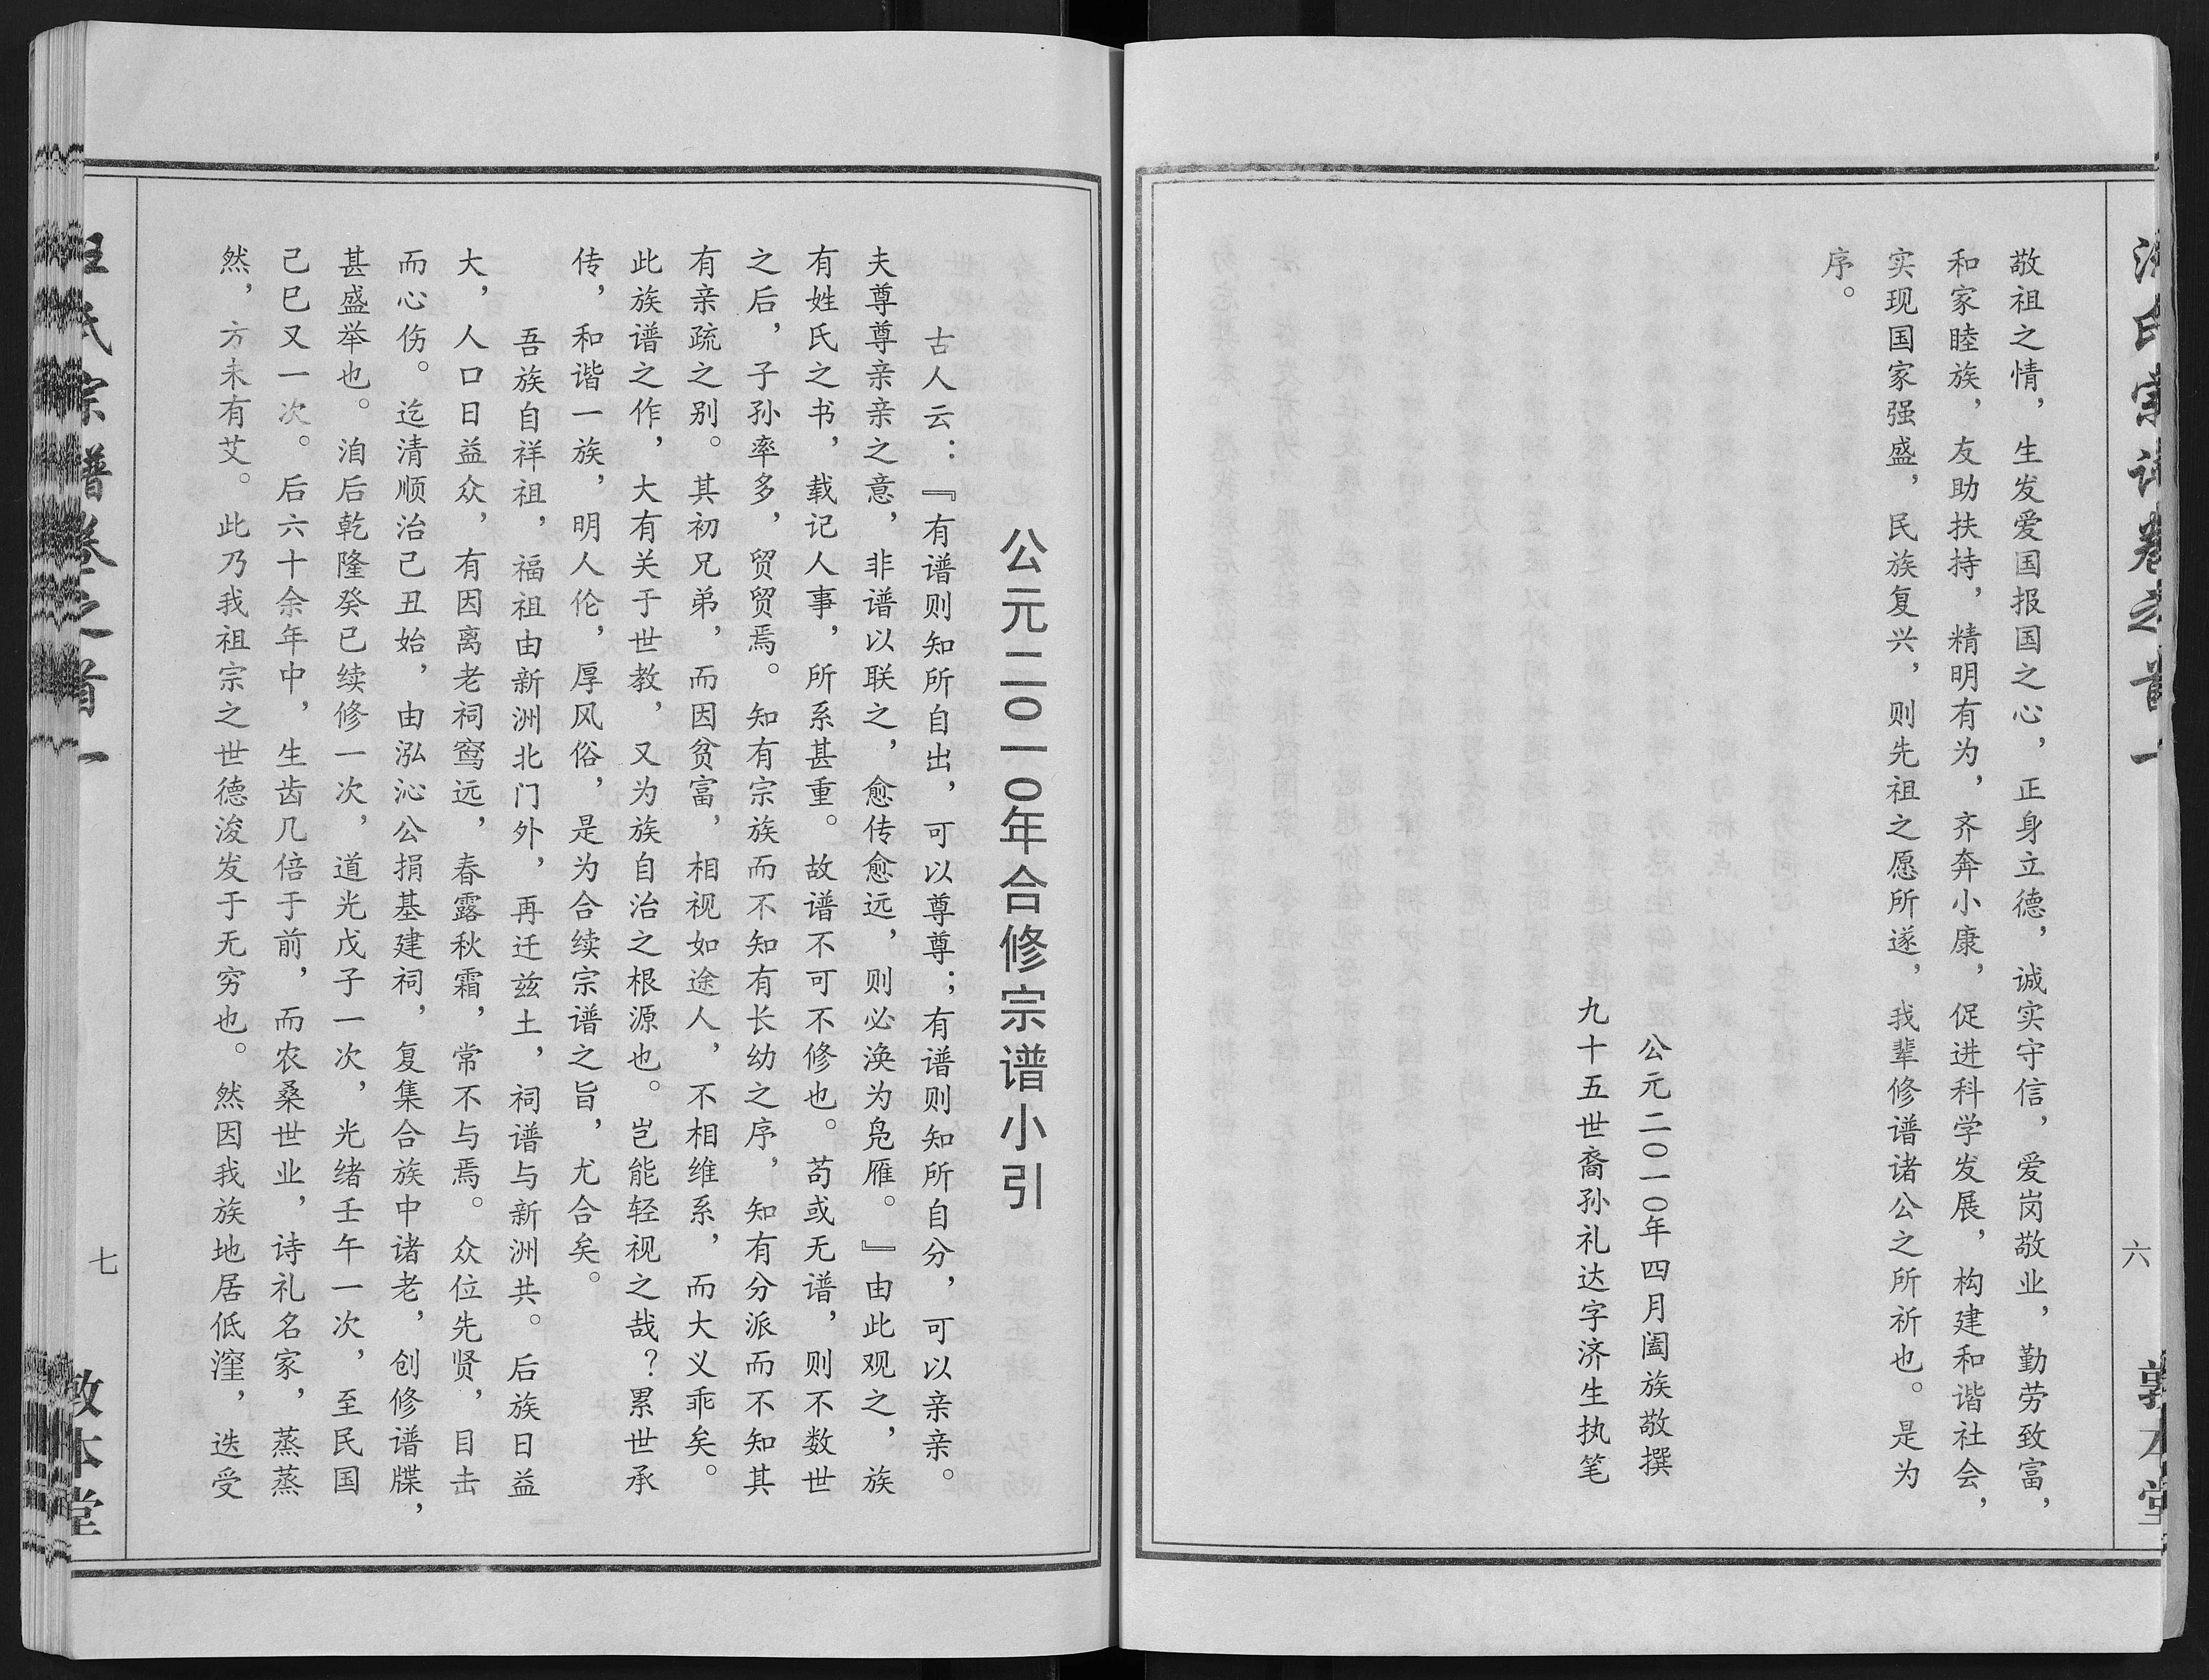 汪氏宗谱卷之首一
六
敦本堂
敬祖之情，生发爱国报国之心，正身立德，诚实守信，爱岗敬业，勤劳致富，
和家睦族，友助扶持，精明有为，齐奔小康，促进科学发展，构建和谐社会，
实现国家强盛，民族复兴，则先祖之愿所遂，我辈修谱诸公之所祈也。是为
序。
公元二〇一〇年四月阖族敬撰
九十五世裔孙礼达字济生执笔
公元二〇一〇年合修宗谱小引
古人云：『有谱则知所自出，可以尊尊；有谱则知所自分，可以亲亲。
夫尊尊亲亲之意，非谱以联之，愈传愈远，则必涣为凫雁。』由此观之，族
有姓氏之书，载记人事，所系甚重。故谱不可不修也。苟或无谱，则不数世
之后，子孙率多，贸贸焉。知有宗族而不知有长幼之序，知有分派而不知其
有亲疏之别。其初兄弟，而因贫富，相视如途人，不相维系，而大义乖矣。
此族谱之作，大有关于世教，又为族自治之根源也。岂能轻视之哉？累世承
传，和谐一族，明人伦，厚风俗，是为合续宗谱之旨，尤合矣。
吾族自祥祖，福祖由新洲北门外，再迁兹土，祠谱与新洲共。后族日益
大，人口日益众，有因离老祠窎远，春露秋霜，常不与焉。众位先贤，目击
而心伤。迄清顺治己丑始，由泓沁公捐基建祠，复集合族中诸老，创修谱牒，
甚盛举也。洎后乾隆癸巳续修一次，道光戊子一次，光绪壬午一次，至民国
己巳又一次。后六十余年中，生齿几倍于前，而农桑世业，诗礼名家，蒸蒸
然，方未有艾。此乃我祖宗之世德浚发于无穷也。然因我族地居低漥，迭受
汪氏宗谱卷之首一
七
敦本堂